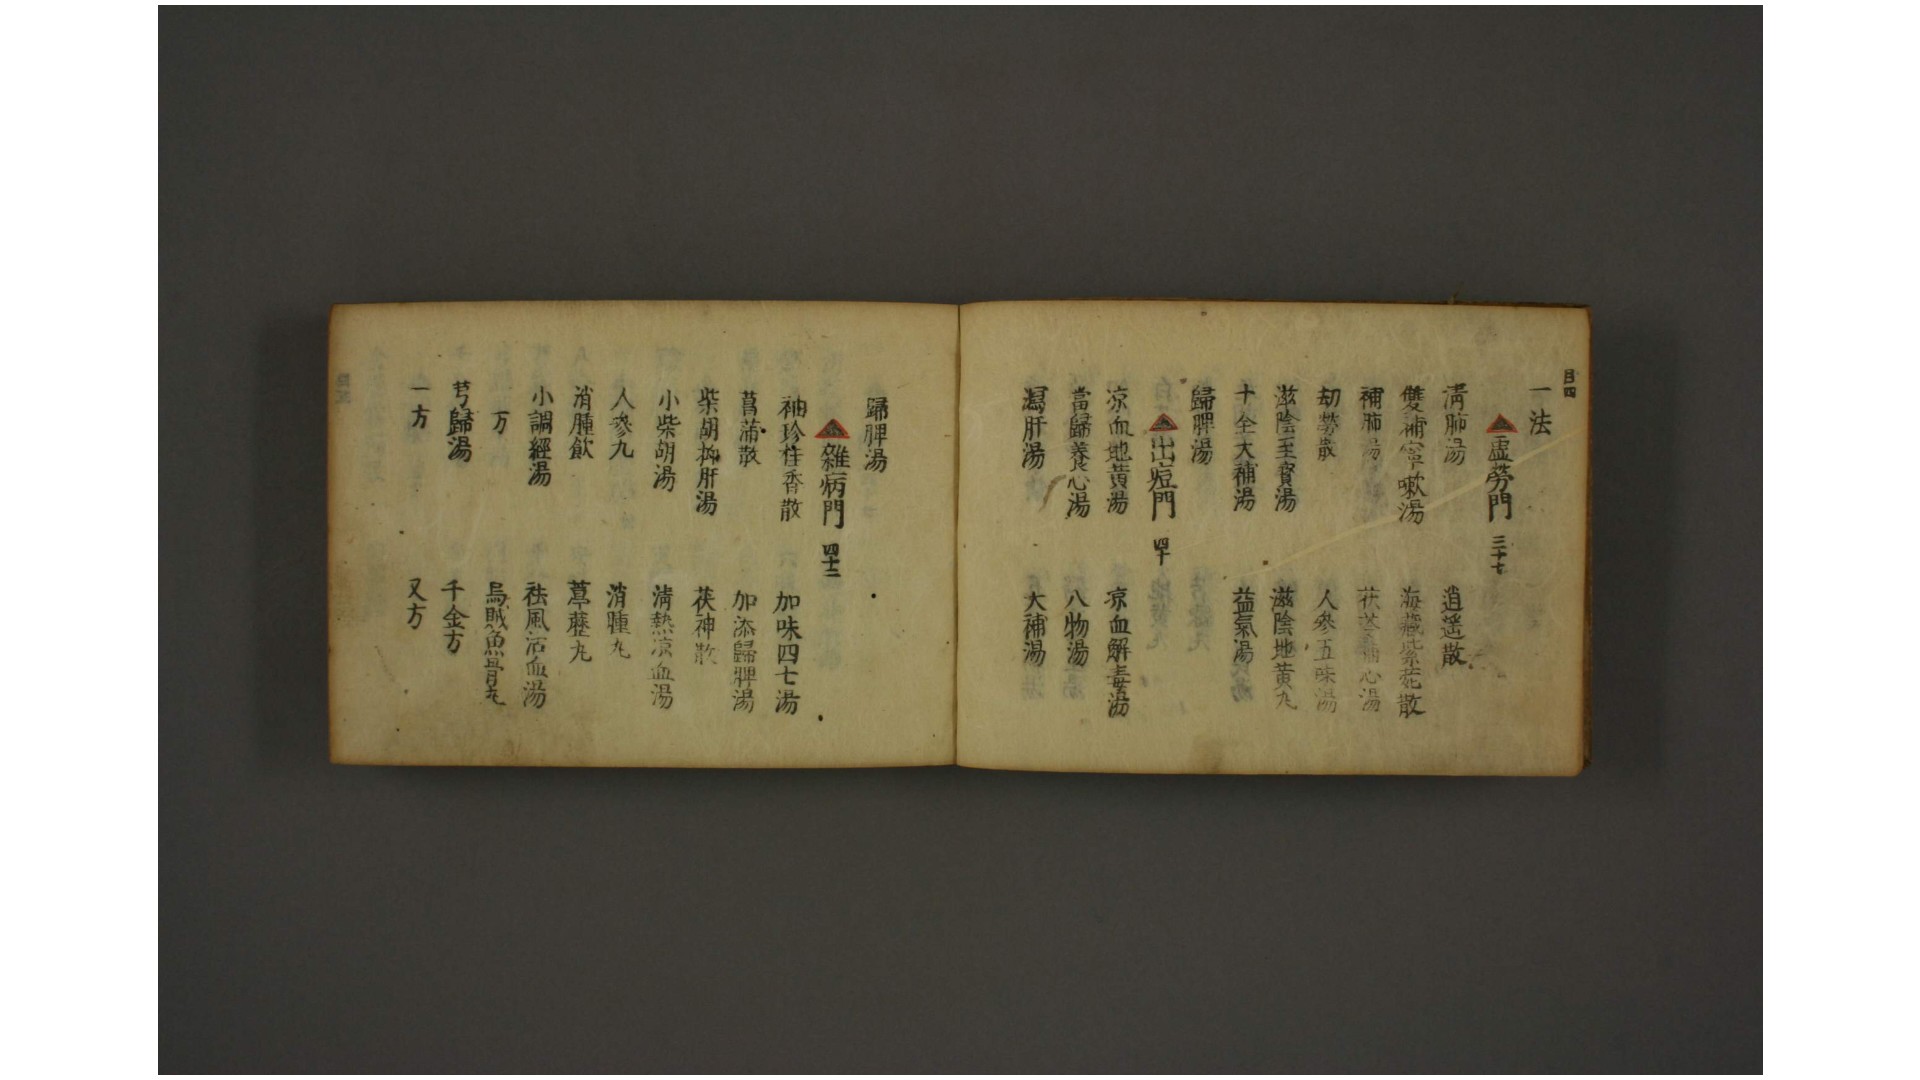 目四
一法
虚勞門 三十七
清肺湯 逍遥散
雙補寧嗽湯 海藏紫菀散
補肺湯 茯苓補心湯
劫勞散 人參五味湯
滋陰至寳湯 滋陰地黄丸
十全大補湯 益氣湯
歸脾湯
出痘門 四十
涼血地黄湯 涼血解毒湯
當歸養心湯 八物湯
瀉肝湯 大補湯
歸脾湯
雜病門 四十二
袖珍桂香散 加味四七湯
菖蒲散 加添歸脾湯
柴胡抑肝湯 茯神散
小柴胡湯 清熱涼血湯
人參丸 消腫丸
消腫飲 葶藶丸
小調經湯 祛風活血湯
万 烏賊魚骨丸
芎歸湯 千金方
一方 又方